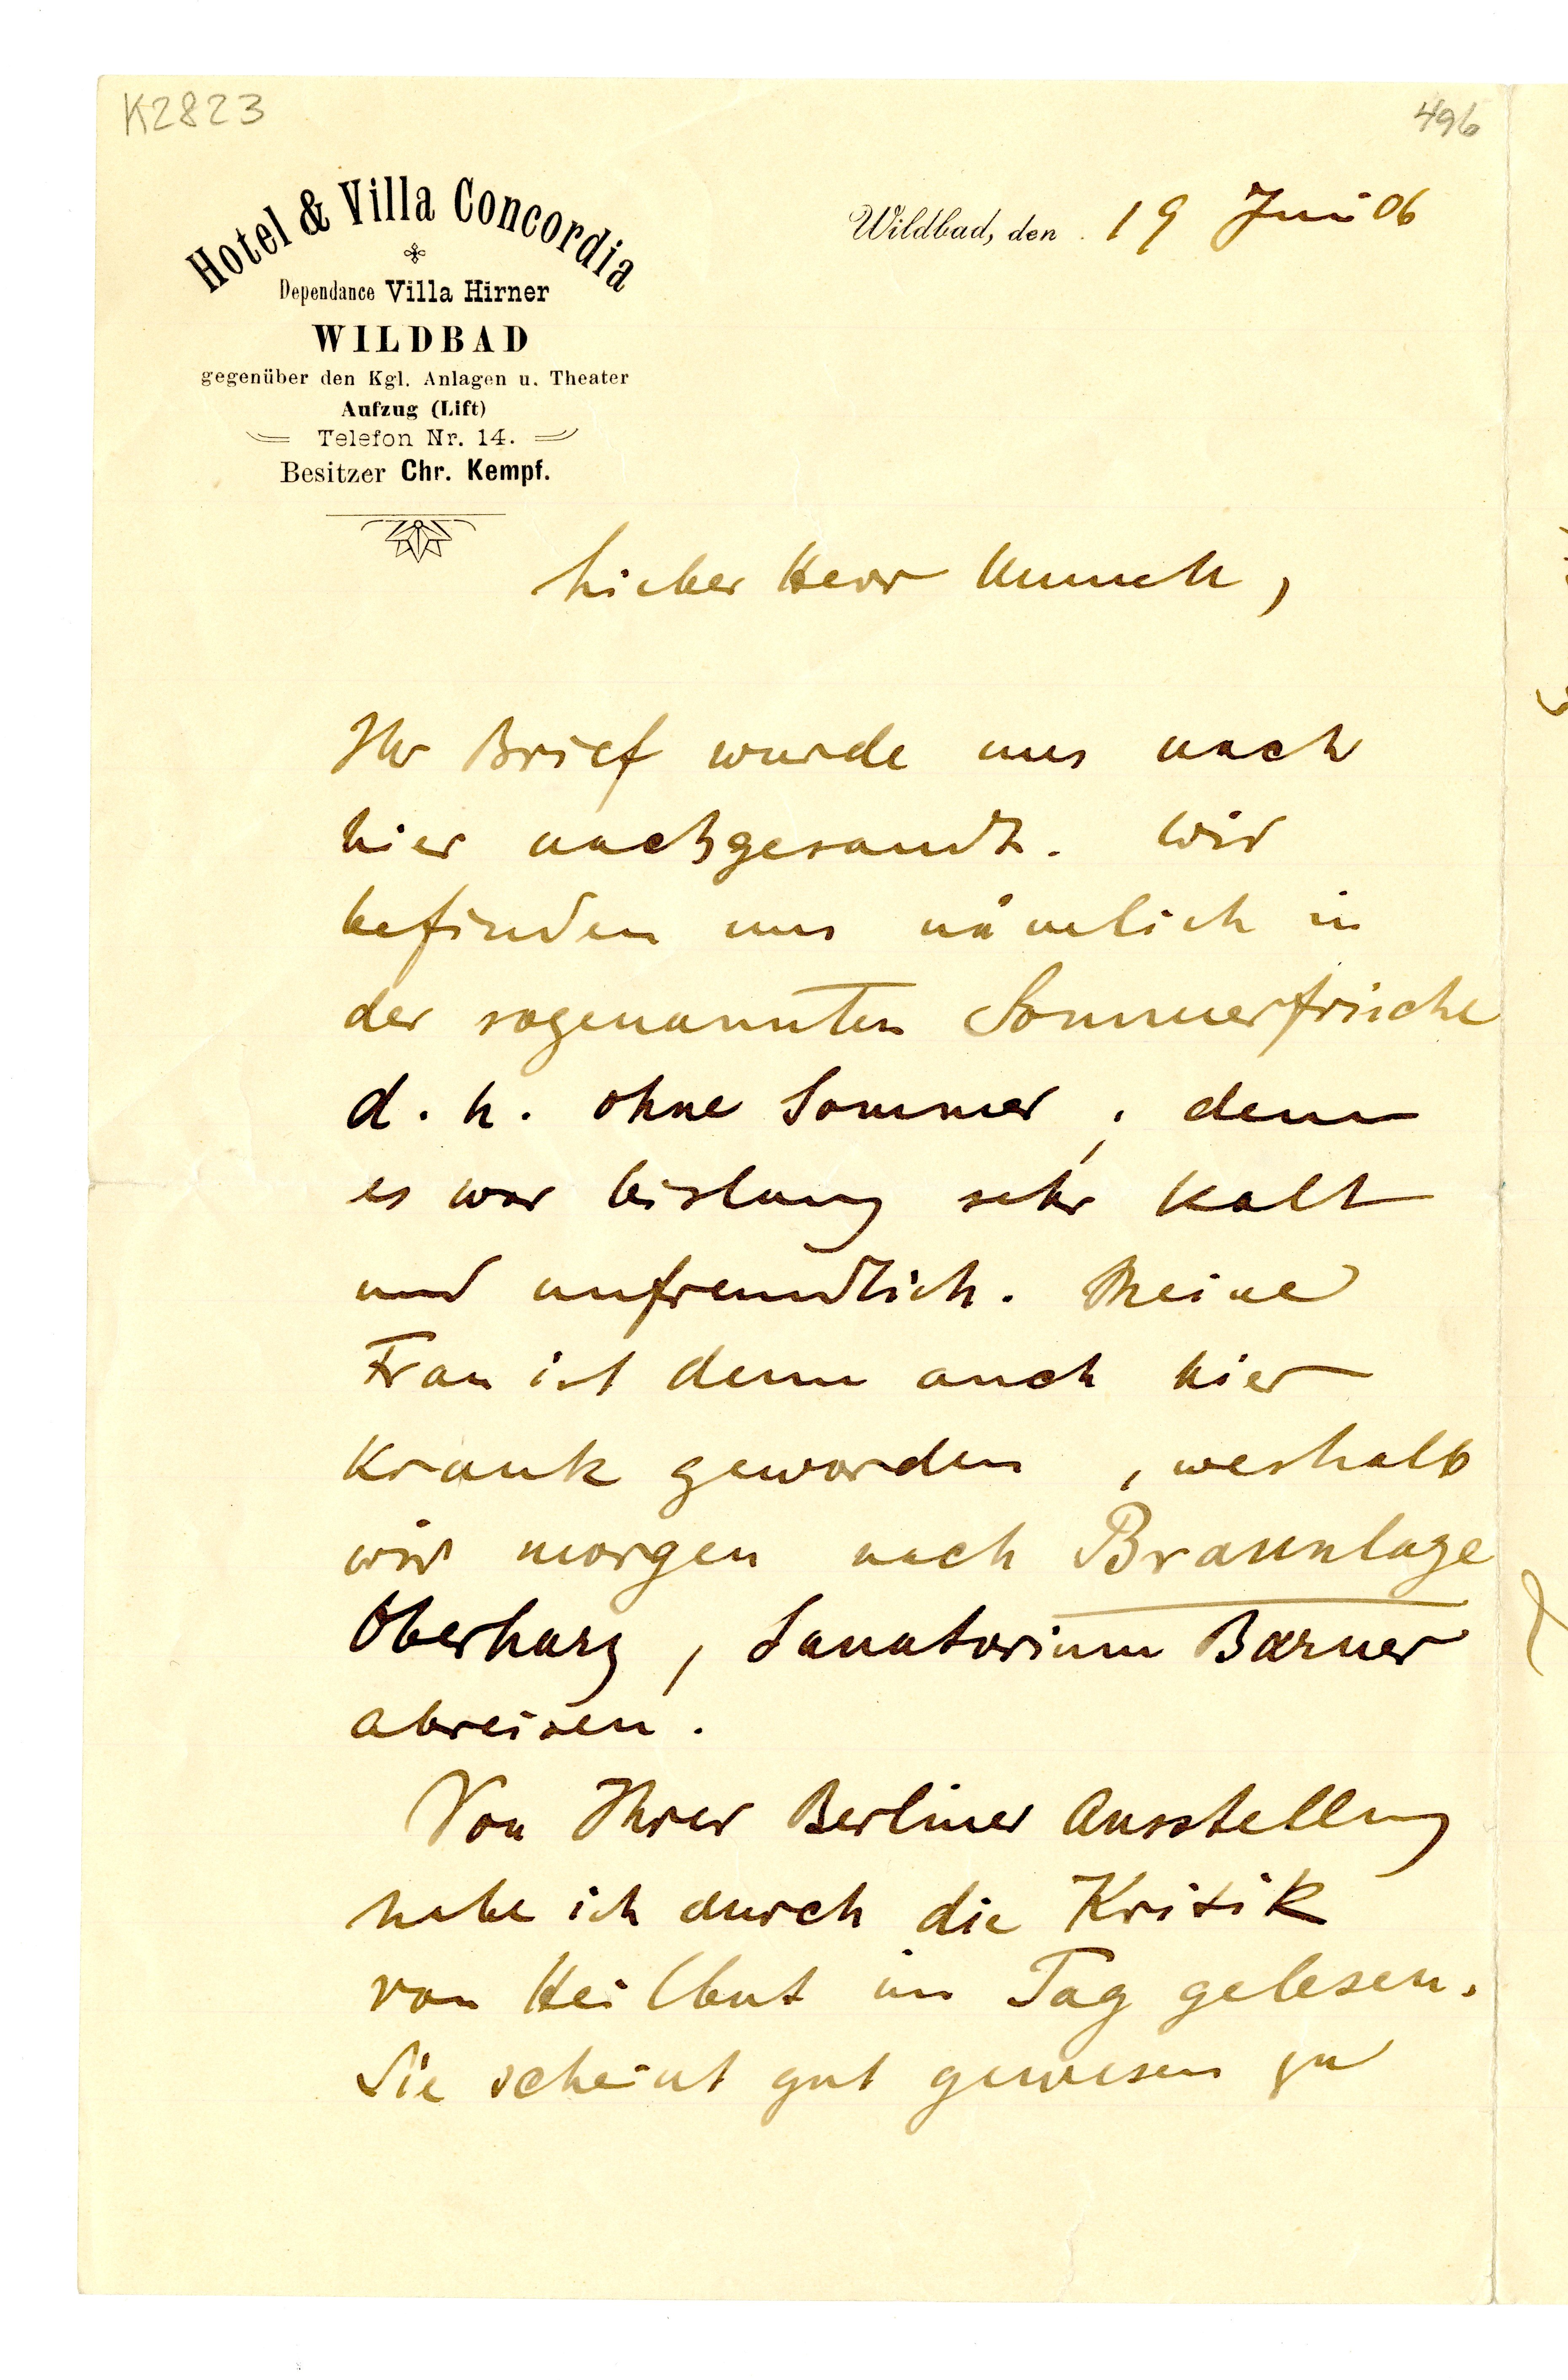 K2823
496
Hotel & Villa Concordia
Dependance Villa Hirner
WILDBAD
gegenüber den Kgl. Anlagen u. Theater
Aufzug (Lift)
Telefon Nr. 14.
Besitzer Chr. Kempf.
Wildbad, den 19 Juni 06
Lieber Herr Munch,
Ihr Brief wurde uns nach
hier nachgesandt. Wir
befinden uns nämlich in
der sogenannten Sommerfrische
d. h. ohne Sommer, denn
es war bislang sehr kalt
und unfreundlich. Meine
Frau ist denn auch hier
krank geworden, weshalb
wir morgen nach Braunlage
Oberharz, Sanatorium Barner
abreisen.
Von Ihrer Berliner Ausstellung
habe ich durch die Kritik
von Heilbut im Tag gelesen.
Sie scheint gut gewesen zu